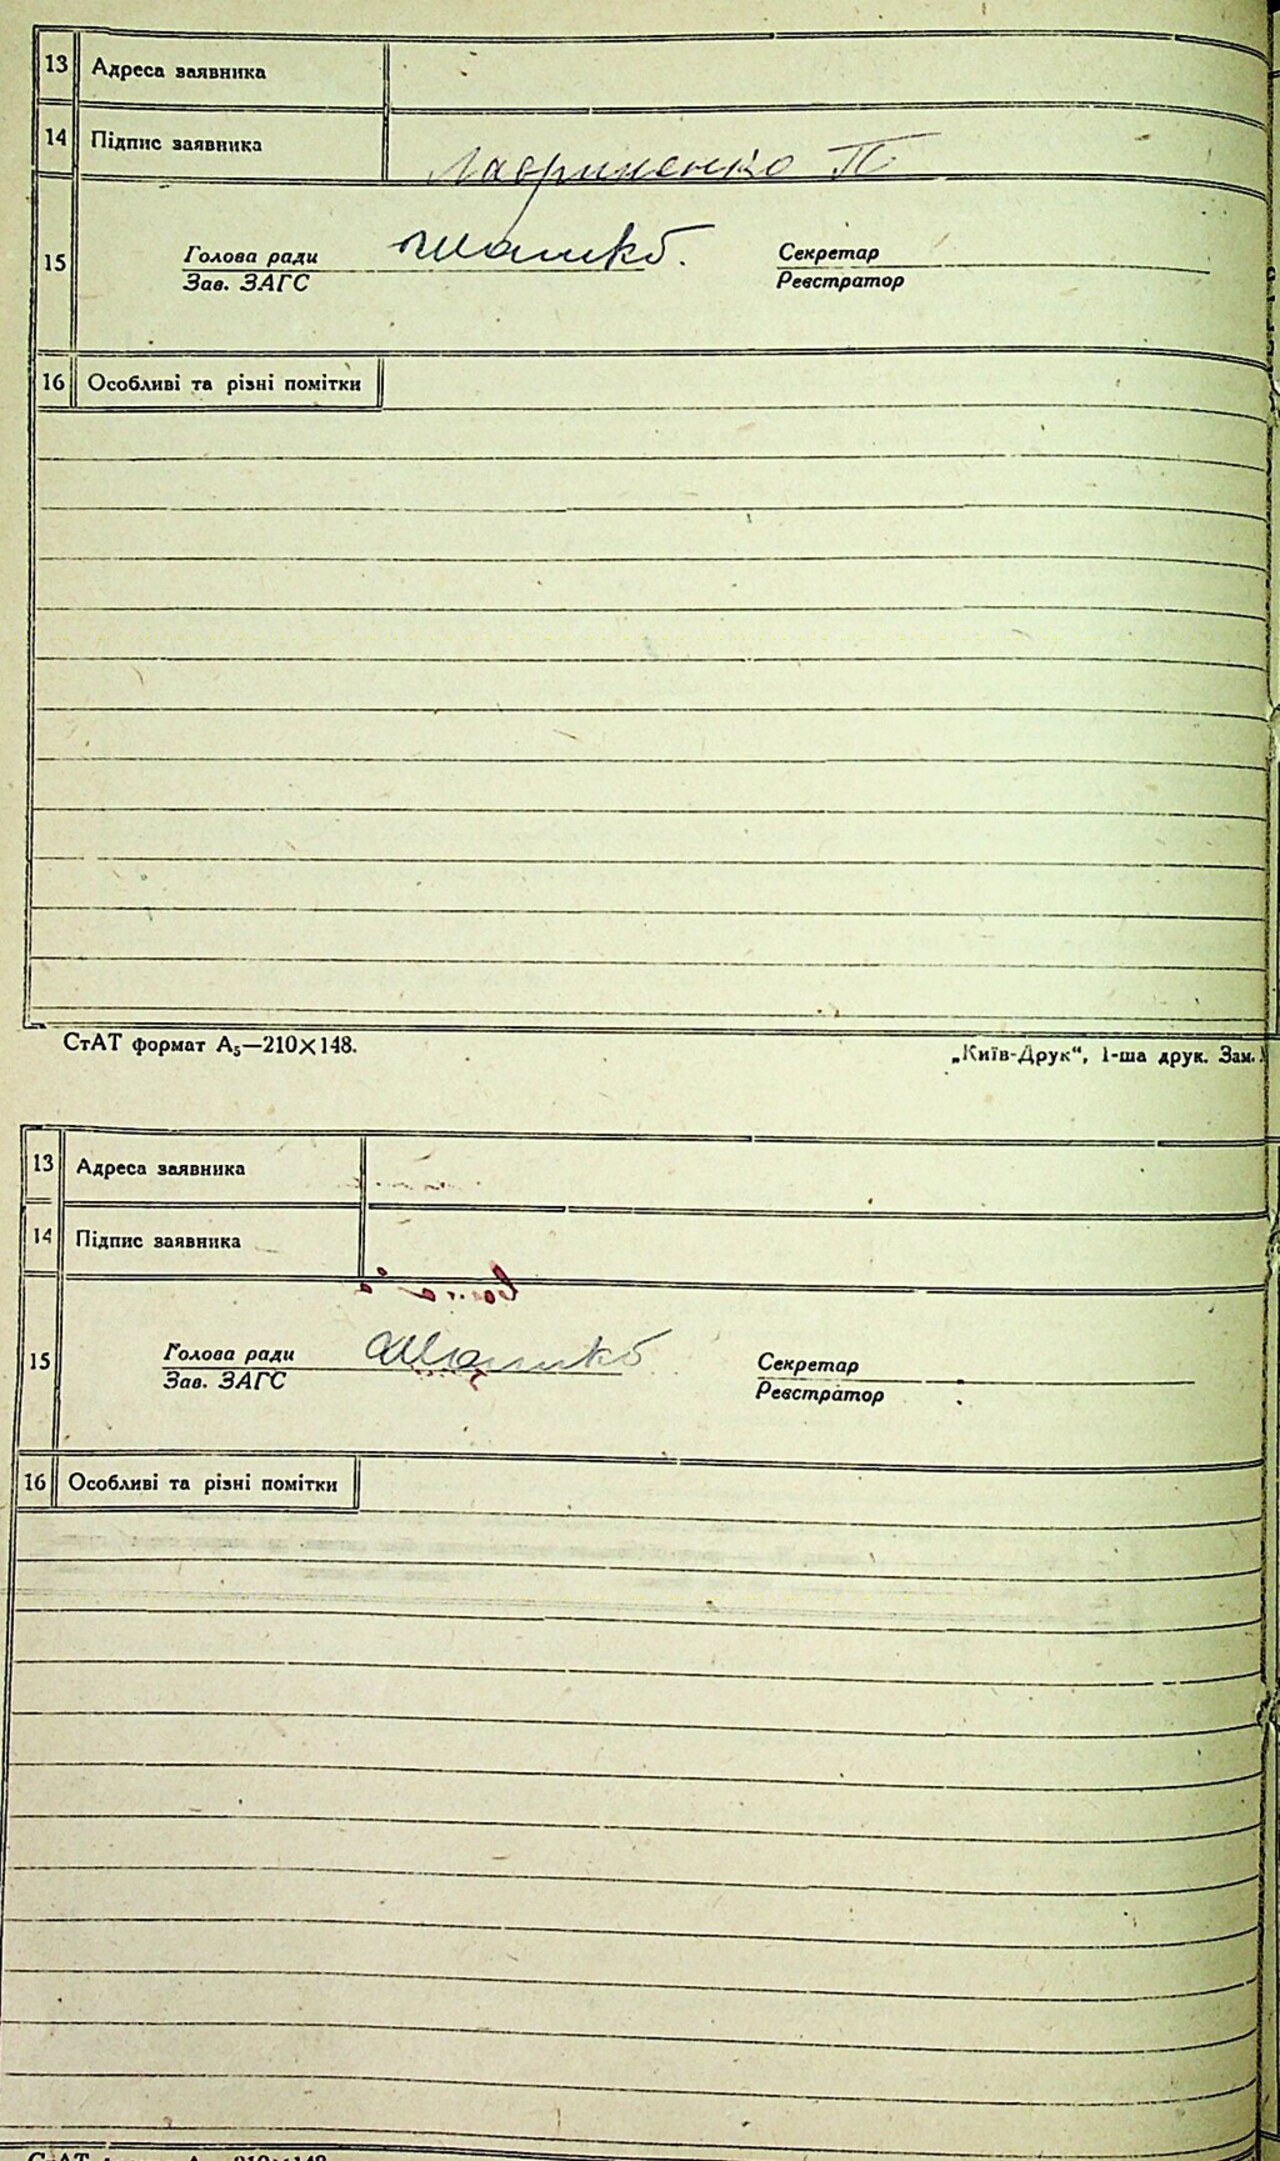 13 Адреса заявника
14 Підпис заявника Лавриненко П
15 Голова ради Секретар
Зав. ЗАГС Реєстратор
16 Особливі та різні помітки
СтАТ формат А₅—210×148. „Київ-Друк“, 1-ша друк. Зам.
13 Адреса заявника
14 Підпис заявника
15 Голова ради Секретар
Зав. ЗАГС Реєстратор
16 Особливі та різні помітки